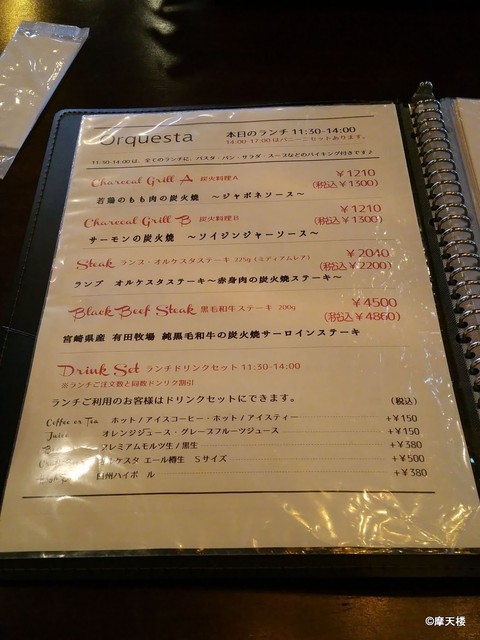 Orquesta 本日のランチ 11:30-14:00
14:00-17:00はパニーニセットあります。
11:30-14:00は、全てのランチに、パスタ・パン・サラダ・スープなどのバイキング付きです♪
Charcoal Grill A 炭火料理A ¥1210
若鶏のもも肉の炭火焼 ～ジャポネソース～ (税込¥1300)
Charcoal Grill B 炭火料理B ¥1210
サーモンの炭火焼 ～ソイジンジャーソース～ (税込¥1300)
Steak ランプ・オルケスタステーキ 225g (ミディアムレア) ¥2040
(税込¥2200)
ランプ オルケスタステーキ～赤身肉の炭火焼ステーキ～
Black Beef Steak 黒毛和牛ステーキ 200g ¥4500
(税込¥4860)
宮崎県産 有田牧場 純黒毛和牛の炭火焼サーロインステーキ
Drink Set ランチドリンクセット 11:30-14:00
※ランチご注文数と同数ドンリク割引
ランチご利用のお客様はドリンクセットにできます。 (税込)
Coffee or Tea ホット/アイスコーヒー・ホット/アイスティー +¥150
Juice オレンジジュース・グレープフルーツジュース +¥150
プレミアムモルツ生/黒生 +¥380
ルケスタ エール樽生 Sサイズ +¥500
白州ハイボール +¥380
©摩天楼